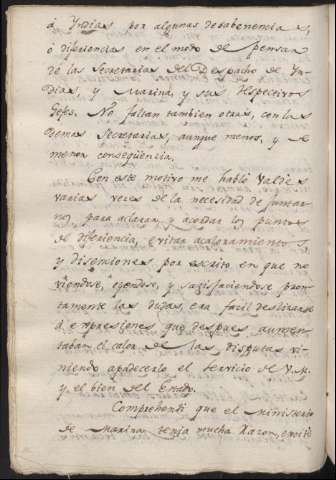 á Yndias por algunas desabenencias,
ó diferiencias en el modo de pensar
de las Secretarias del Despacho de Yn-
dias, y Marina, y sus Respectivos
Gefes. No faltan tambien otras, con las
demas Secretarias, aunque menos, y de
menor conseqüencia.
Con este motivo me habló Valdés
varias veces de la necesidad de juntar-
nos para aclarar, y acordar los puntos
de diferiencia, evitar acaloramientos
y disensiones por escrito en que no
viendose, oyendose, y satisfaciendose pron-
tamente las dudas, era facil deslizarse
á expresiones que despues aumen-
taban el calor de las disputas vi-
niendo apadecerlo el servicio de V.M.
y el bien del Estado.
Comprehendi que el Ministerio
de Marina tenia mucha razon,